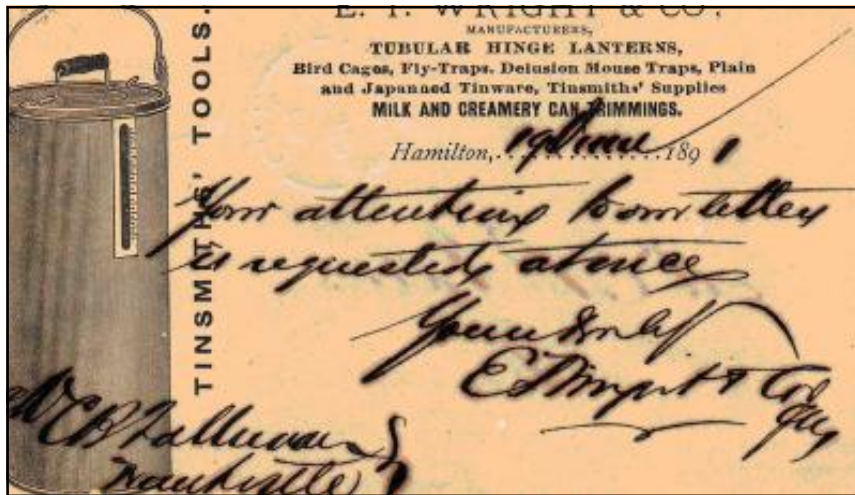 E. T. WRIGHT & CO,
MANUFACTURERS,
TUBULAR HINGE LANTERNS,
Bird Cages, Fly-Traps, Delusion Mouse Traps, Plain
and Japanned Tinware, Tinsmiths' Supplies
MILK AND CREAMERY CAN TRIMMINGS.
Hamilton, 19 June 1891
TINSMITHS' TOOLS.
Your attention to our letter
is requested at once
Yours truly
E T Wright & Co
C B